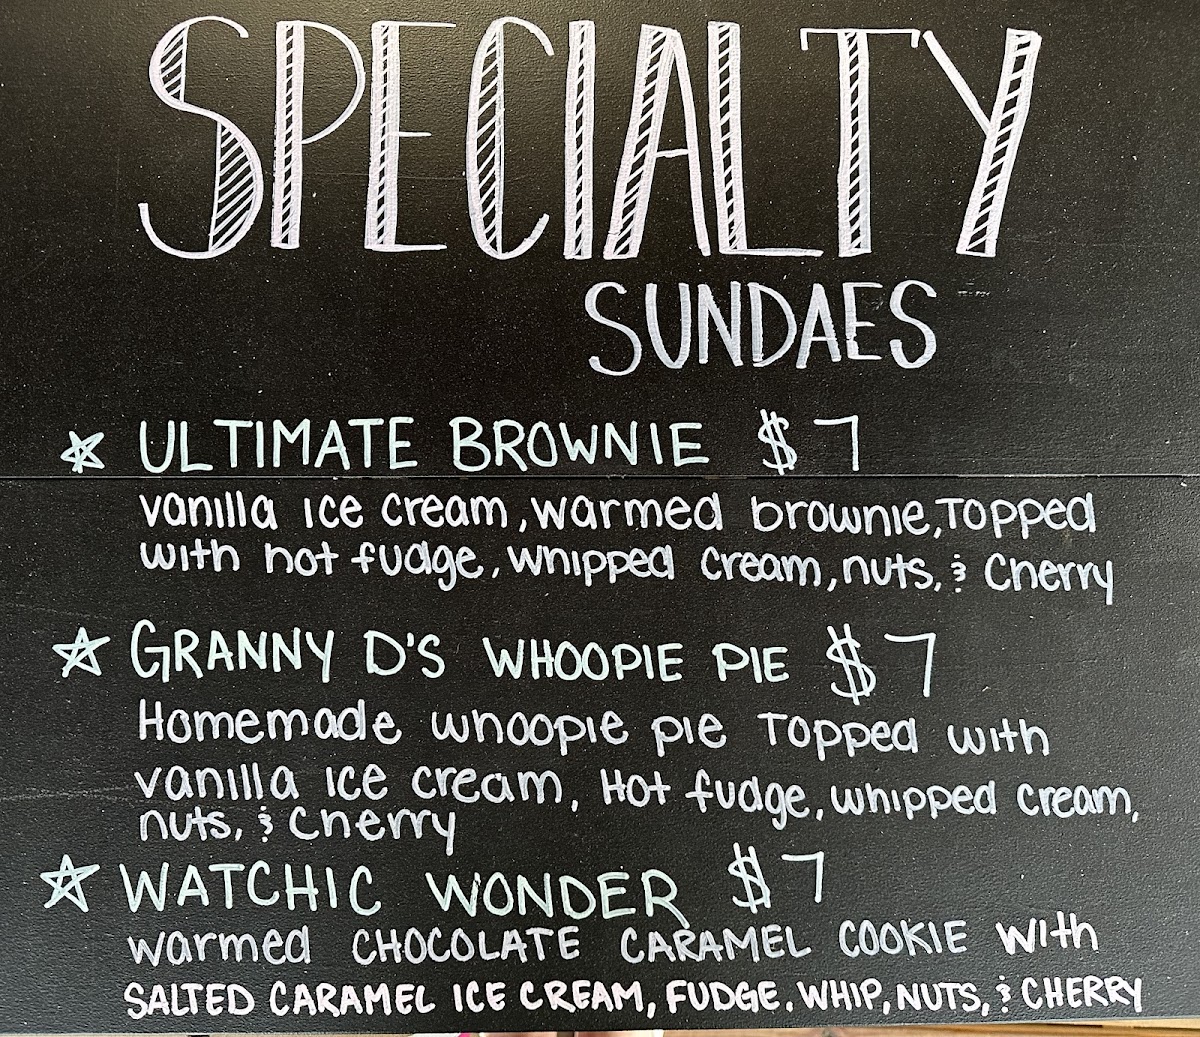 SPECIALTY
SUNDAES
ULTIMATE BROWNIE $7
vanilla ice cream, warmed brownie, Topped
with hot fudge, whipped cream, nuts, & Cherry
GRANNY D'S WHOOPIE PIE $7
Homemade whoopie pie Topped with
vanilla ice cream, Hot fudge, whipped cream,
nuts, & Cherry
WATCHIC WONDER $7
warmed CHOCOLATE CARAMEL COOKIE with
SALTED CARAMEL ICE CREAM, FUDGE, WHIP, NUTS, & CHERRY